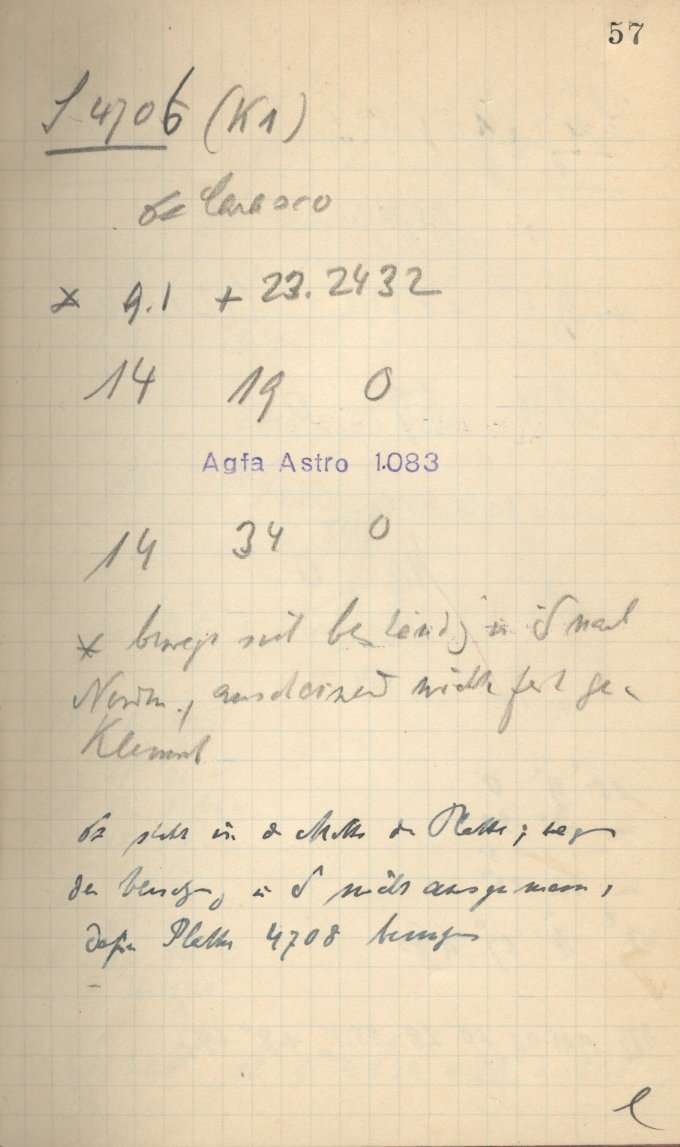 57
S 4706 (K1)
* 9.1 + 23.2432
14 19 0
Agfa Astro 1.083
14 34 0
* bewegt sich beständig in δ nach
Norden, anscheinend nicht fest ge-
klemmt
steht in der Mitte der Platte; wegen
der Bewegung in δ nicht ausgemessen,
dafür Platte 4708